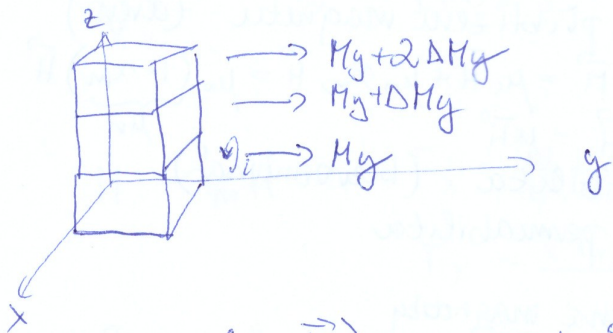 z
My+2ΔMy
My+ΔMy
My
y
x